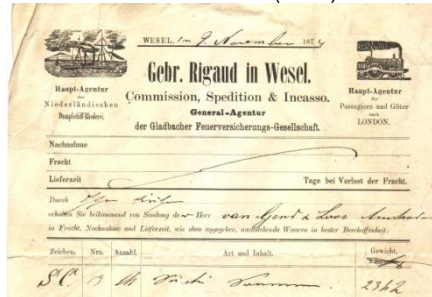 WESEL, den 9. November 187
Gebr. Rigaud in Wesel.
Haupt-Agentur
der
Niederländischen
Dampfschiff-Rhederei.
Commission, Spedition & Incasso.
General-Agentur
der Gladbacher Feuerversicherungs-Gesellschaft.
Haupt-Agentur
für
Passagiere und Güter
nach
LONDON.
Nachnahme
Fracht
Lieferzeit Tage bei Verlust der Fracht.
Durch
erhalten Sie beikommend in Sendung der Herr van Gend & Loos
in Fracht, Nachnahme und Lieferzeit, wie oben angegeben, nachstehende Waaren in bester Beschaffenheit:
Zeichen, Nro. Anzahl. Art und Inhalt. Gewicht.
SC 2342